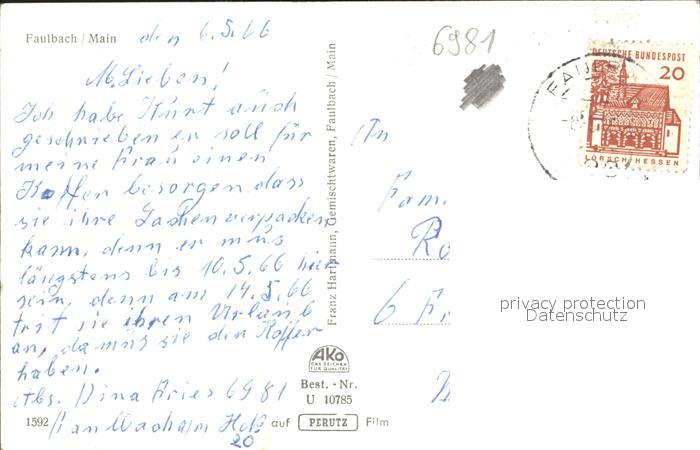 Faulbach / Main
den 6.5.66
M. Lieben!
Ich habe Kurt auch
geschrieben er soll für
meine Frau einen
Koffer besorgen dass
sie ihre Sachen verpacken
kann, denn er muß
längstens bis 10.5.66 hier
sein, denn am 14.5.66
trit sie ihren Urlaub
an, da muß sie den Koffer
haben.
Abs. Dina Aries 6981
Faulbach a/m
20
1592
Franz Hartmann, Gemischtwaren, Faulbach / Main
AKO
DAS ZEICHEN
FÜR QUALITÄT
Best. - Nr.
U 10785
auf PERUTZ Film
6981
DEUTSCHE BUNDESPOST
20
LORSCH/HESSEN
An
Fam.
Ro
6 Fr
privacy protection
Datenschutz